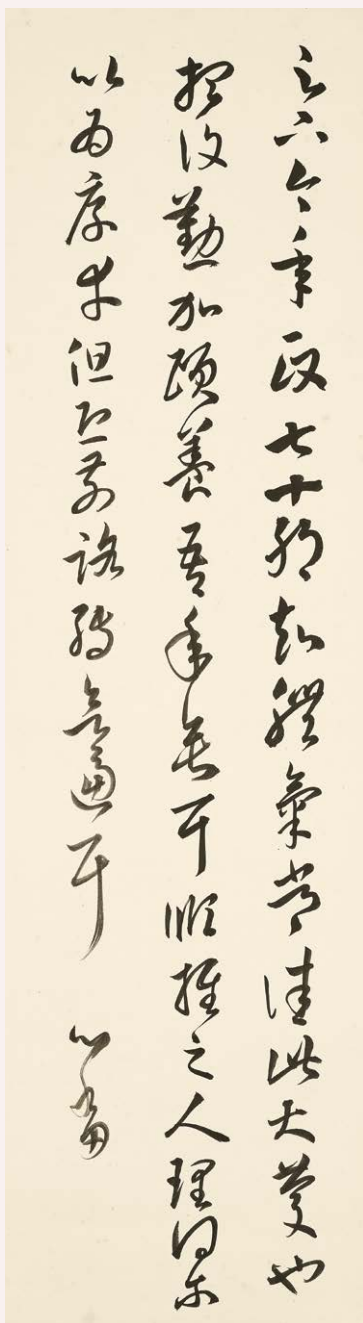 足下今年政七十耶知體氣常佳此大慶也
想復勤加頤養吾年垂耳順推之人理得尔
以為厚幸但恐前路轉欲逼耳 心畬